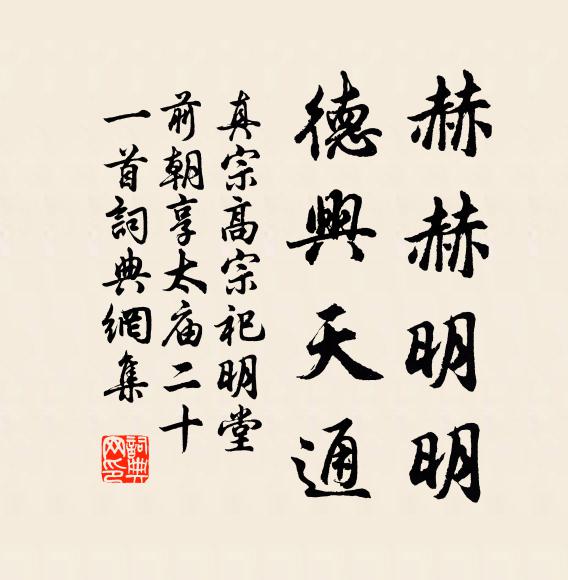 赫赫明明
德興天通
真宗高宗祀明堂
前朝享太庙二十
一首詞典網集
詞典网印